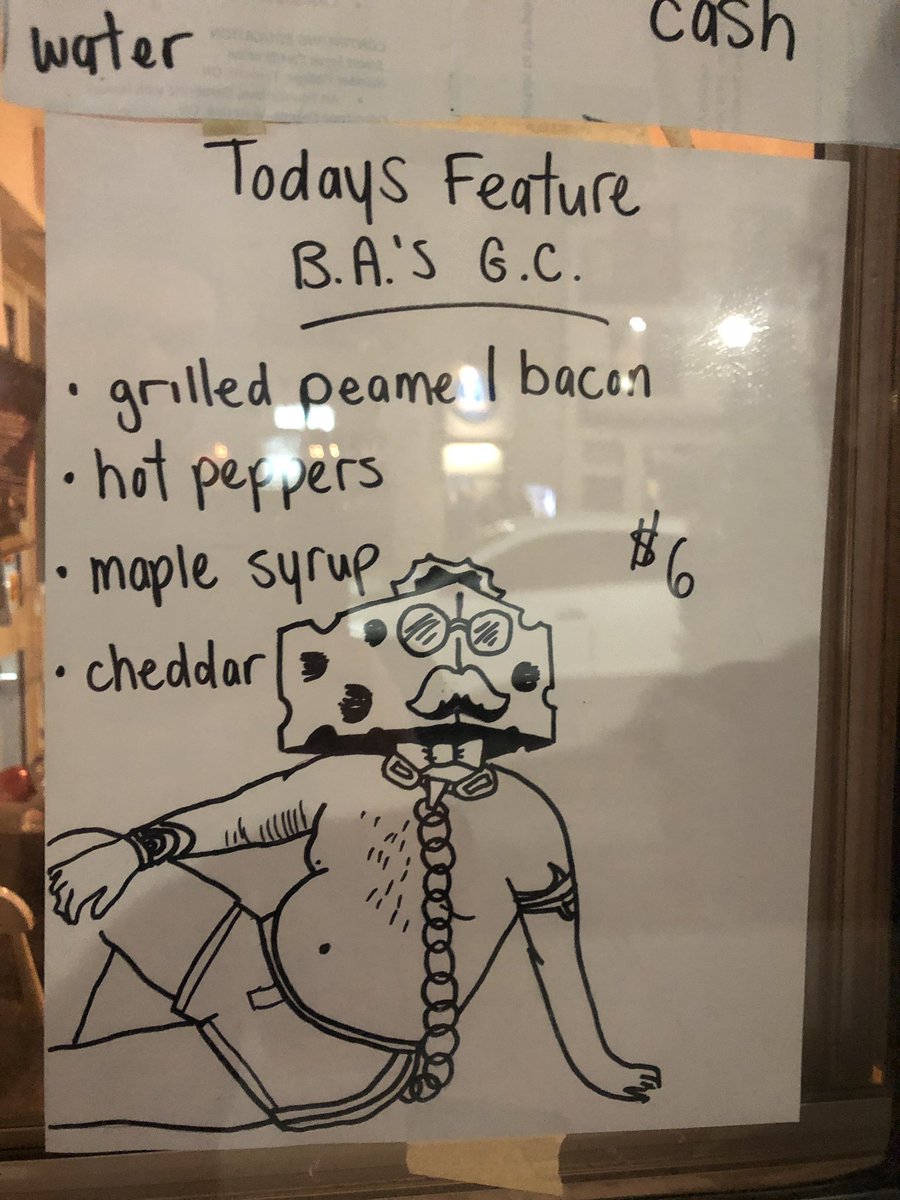 water
cash
Todays Feature
B.A.'s G.C.
• grilled peameal bacon
• hot peppers
• maple syrup
$6
• cheddar